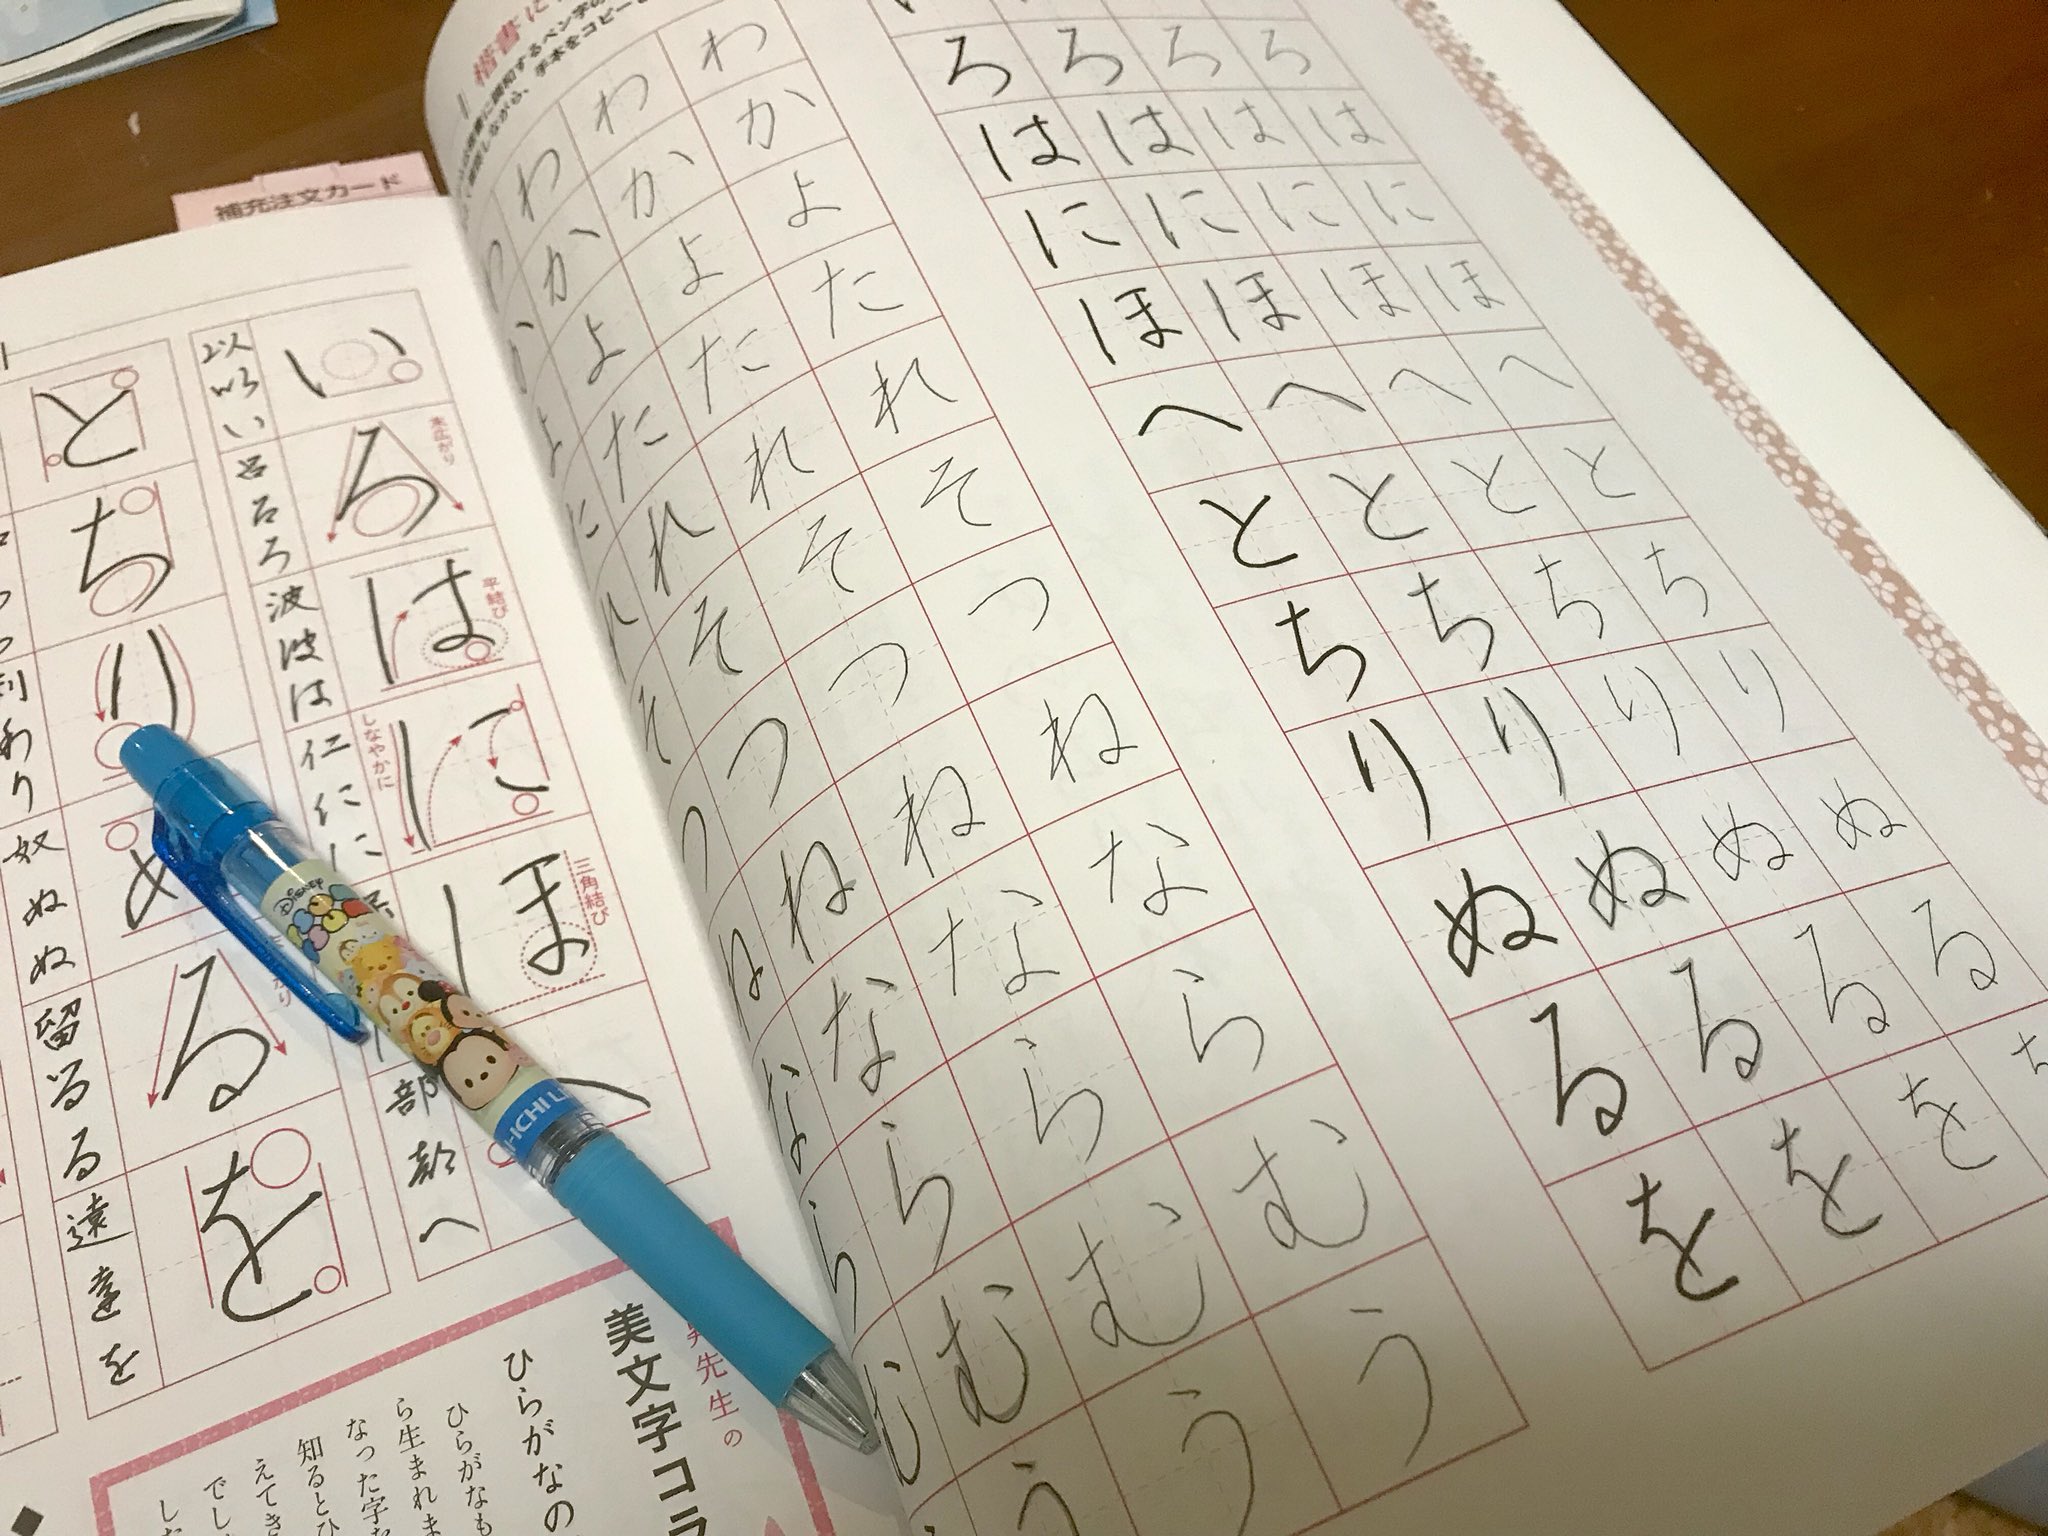 補充注文カード
楷書に
手本をコピー
ろはにほへとちりぬる
ろはにほへとちりぬるを
ろはにほへとちりぬるを
ろはにほへとちりぬるを
わかよたれそつねならむう
わかよたれそつねならむう
わかよたれそつねならむう
わかよたれそつねならむ
い
ろ
末広がり
は
平結び
に
しなやかに
ほ
三角結び
以 以 い
呂 呂 ろ
波 波 は
仁 に に
部 部 へ
と
ち
り
ぬ
る
を
利 わ り
奴 ぬ ぬ
留 る る
遠 遠 を
先生の
美文字コラ
ひらがなの
ひらがなも
ら生まれま
なった字
知るとひ
えてき
でし
Disney